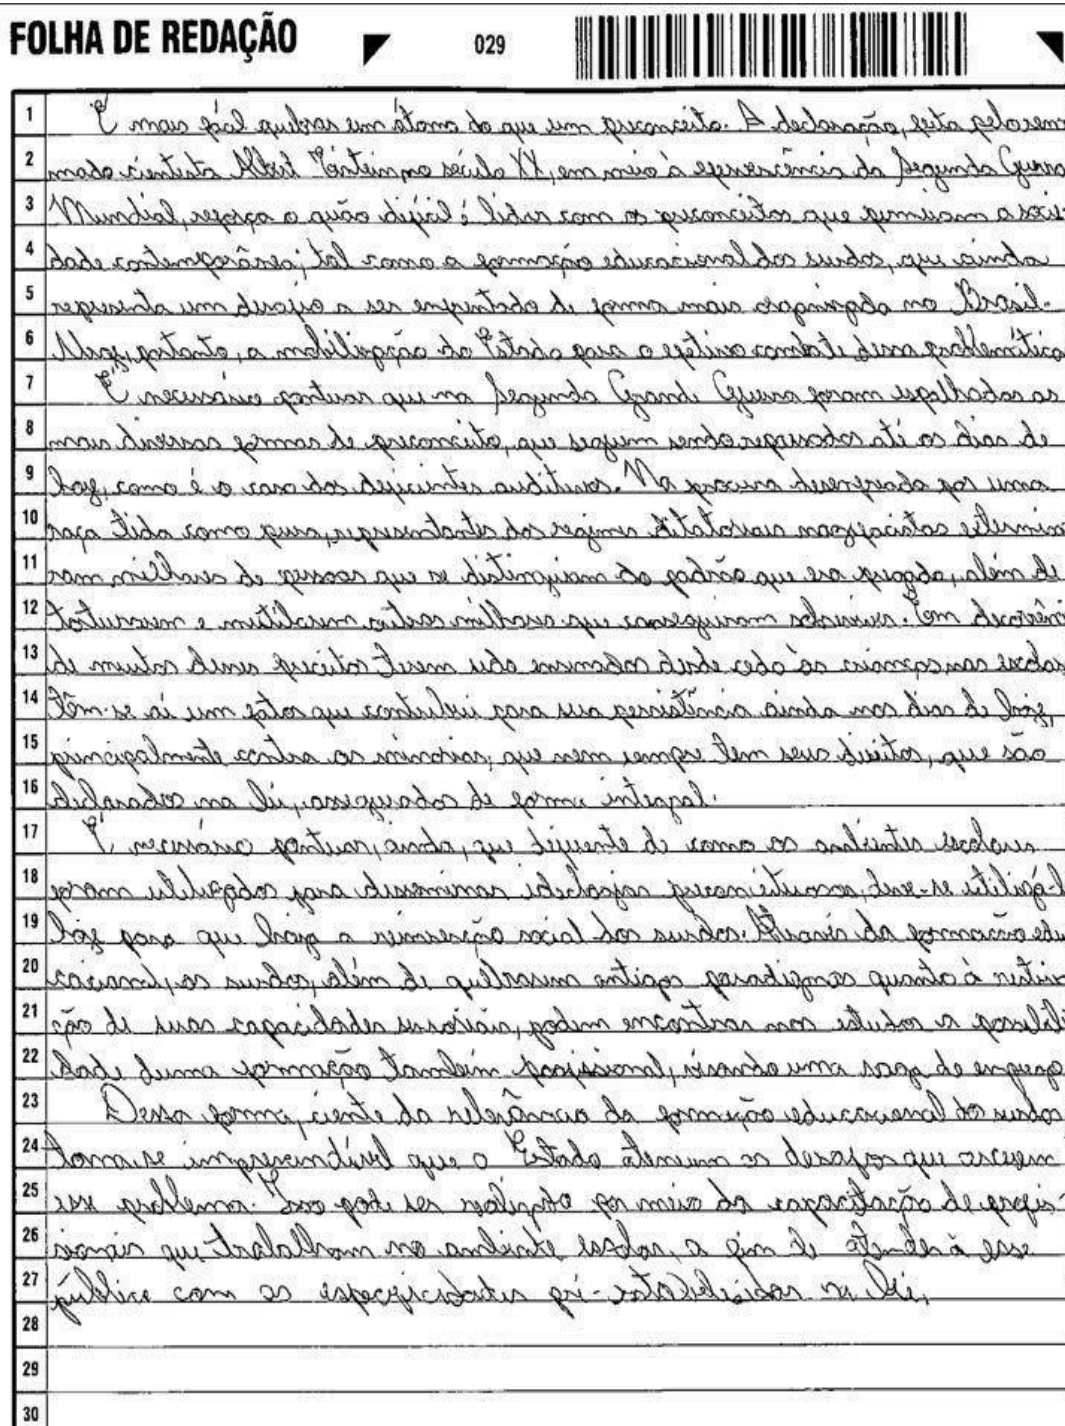 FOLHA DE REDAÇÃO
029
1 É mais fácil quebrar um átomo do que um preconceito. A declaração, feita pelo renom
2 mado cientista Albert Einstein, no século XX, em meio à efervescência da Segunda Guerra
3 Mundial, reforça o quão difícil é lidar com os preconceitos que permeiam a socie
4 dade contemporânea; tal como a formação educacional dos surdos, que ainda
5 representa um desafio a ser enfrentado de forma mais organizada no Brasil.
6 Urge, portanto, a mobilização do Estado para o efetivo combate dessa problemática
7 É necessário pontuar que na Segunda Grande Guerra foram espalhadas as
8 mais diversas formas de preconceito, que seguem sendo repassados até os dias de
9 hoje, como é o caso dos deficientes auditivos. Na procura desenfreada por uma
10 raça tida como pura, representantes dos regimes ditatoriais nazifacistas elimin
11 ram milhares de pessoas que se distinguiam do padrão que era pregado, além de
12 torturarem e mutilarem outros milhares que conseguiram sobreviver. Em decorrên
13 de muitos desses preceitos terem sido ensinados desde cedo às crianças nas escolas
14 têm-se aí um fator que contribui para sua persistência ainda nos dias de hoje,
15 principalmente contra as minorias, que nem sempre tem seus direitos, que são
16 declarados na lei, assegurados de forma integral.
17 É necessário pontuar, ainda, que diferente de como os ambientes escolares
18 foram utilizados para disseminar ideologias preconceituosas, deve-se utilizá-l
19 hoje para que haja a reinserção social dos surdos. Através da formação edu
20 cacional, os surdos, além de quebrarem antigos paradigmas quanto à restri
21 ção de suas capacidades sensoriais, podem encontrar nos estudos a possibili
22 dade duma formação também profissional, visando uma vaga de emprego
23 Dessa forma, ciente da relevância da formação educacional do surdo
24 torna-se imprescindível que o Estado atenue os desafios que cercam
25 esse problema. Isso pode ser realizado por meio da capacitação de profis-
26 sionais que trabalham no ambiente escolar, a fim de atender à esse
27 público com as especificidades pré-estabelecidas na lei.
28
29
30